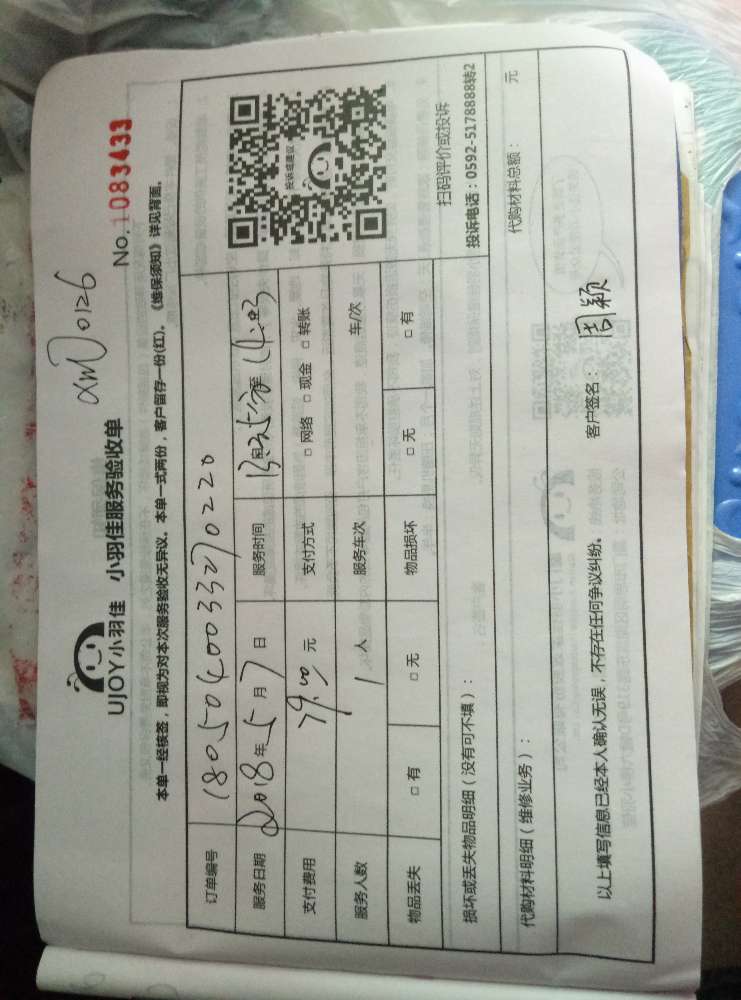 xm0126
UJOY小羽佳 小羽佳服务验收单
No. 1083433
本单一经核签,即视为对本次服务验收无异议。本单一式两份,客户留存一份(红)。《维保须知》详见背面。
订单编号 180504003370220
服务日期 2018年5月7日 服务时间 至
支付费用 79.00 元 支付方式 □ 网络 □ 现金 □ 转账
服务人数 1 人 服务车次 车/次
物品丢失 □ 有 □ 无 物品损坏 □ 无 □ 有
投诉或建议
扫码评价或投诉
投诉电话:0592-5178888转2
损坏或丢失物品明细(没有可不填):
代购材料明细(维修业务): 代购材料总额: 元
以上填写信息已经本人确认无误,不存在任何争议纠纷。 客户签名: 周颖